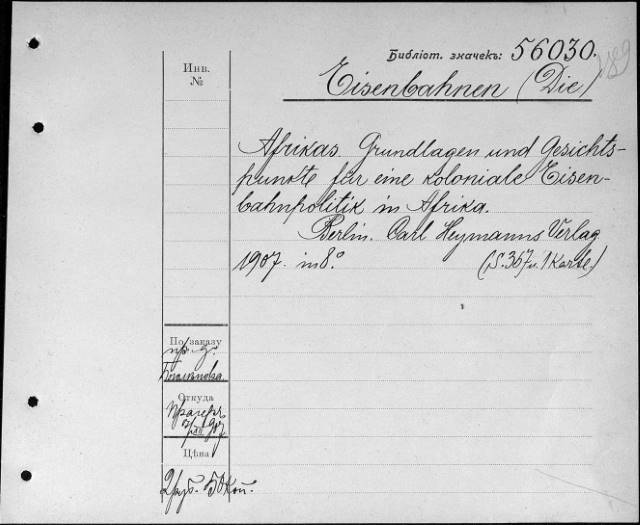 Библіот. значекъ: 56030.
189
Инв.
№
Eisenbahnen (Die)
Afrikas. Grundlagen und Gesichts-
punkte für eine koloniale Eisen-
bahnpolitik in Afrika.
Berlin. Carl Heymanns Verlag.
1907. in 8°.
(S. 367 u. 1 Karte.)
По заказу
пр. д.
Откуда
Прагеръ
907
Цѣна
2 руб. 50 коп.